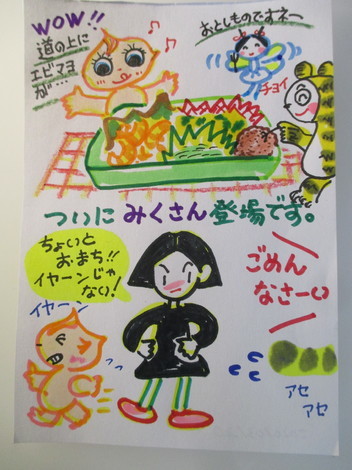 WOW!!
道の上に
エビマヨ
が…
おとしものですネー
チョイ
ついにみくさん登場です。
ちょいと
おまち!!
イヤーンじゃ
ない!
イヤーン
ごめん
なさーい
アセ
アセ